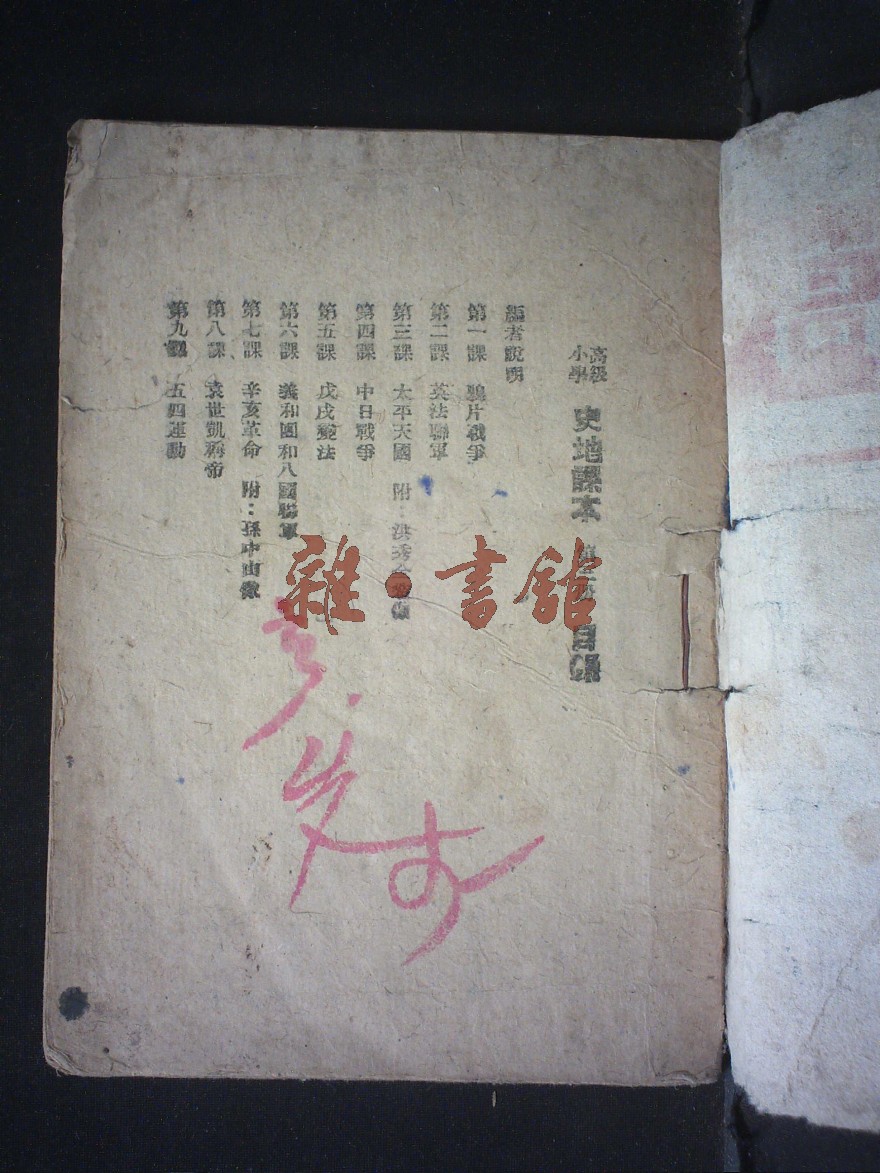 高級
小學
史地課本 第 冊 目錄
編者說明
第一課 鴉片戰爭
第二課 英法聯軍
第三課 太平天國 附:洪秀全像
第四課 中日戰爭
第五課 戊戌變法
第六課 義和團和八國聯軍
第七課 辛亥革命 附:孫中山像
第八課 袁世凱稱帝
第九課 五四運動
雜·書館